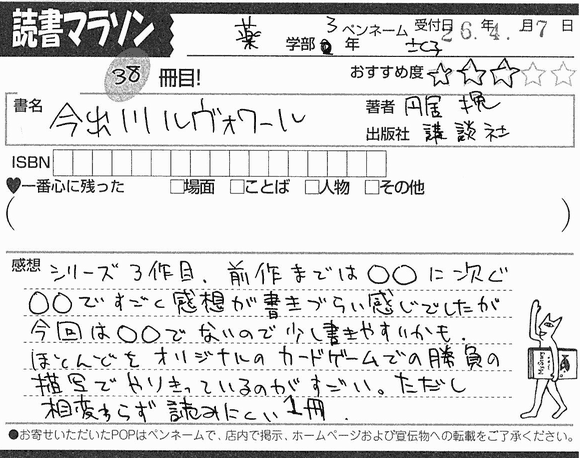 読書マラソン
薬 学部 3 年 ペンネーム 受付日 26.年4.月7日
38 冊目! おすすめ度 ☆☆☆☆☆
書名 今出川ルヴォワール 著者 円居 挽
出版社 講談社
ISBN
♥一番心に残った □場面 □ことば □人物 □その他
( )
感想 シリーズ3作目、前作までは〇〇に次ぐ
〇〇ですごく感想が書きづらい感じでしたが
今回は〇〇でないので少し書きやすいかも。
ほとんどをオリジナルのカードゲームでの勝負の
描写でやりきっているのがすごい。ただし
相変わらず読みにくい1冊.
●お寄せいただいたPOPはペンネームで、店内で掲示、ホームページおよび宣伝物への転載をご了承ください。